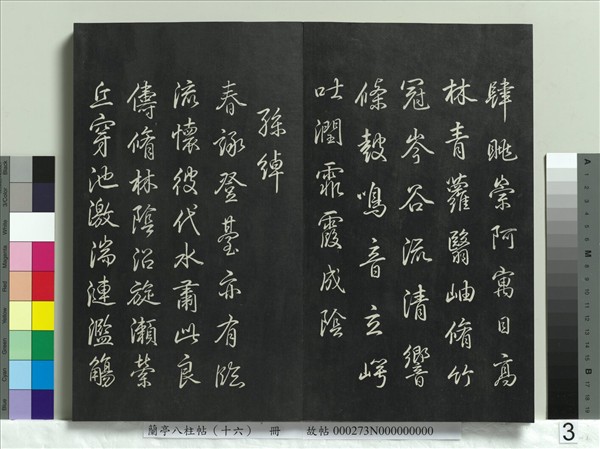 肆眺崇阿寓目高
林青蘿翳岫脩竹
冠岑谷流清響
條鼓鳴音立崿
吐潤霏霞成陰
孫綽
春詠登臺亦有臨
流懷彼伐木肅此良
儔脩林陰沼旋瀨縈
丘穿池激湍漣濫觴
蘭亭八柱帖(十六) 冊 故帖 000273N000000000
3
Black
3/Color
White
Magenta
Red
Yellow
Green
Cyan
Blue